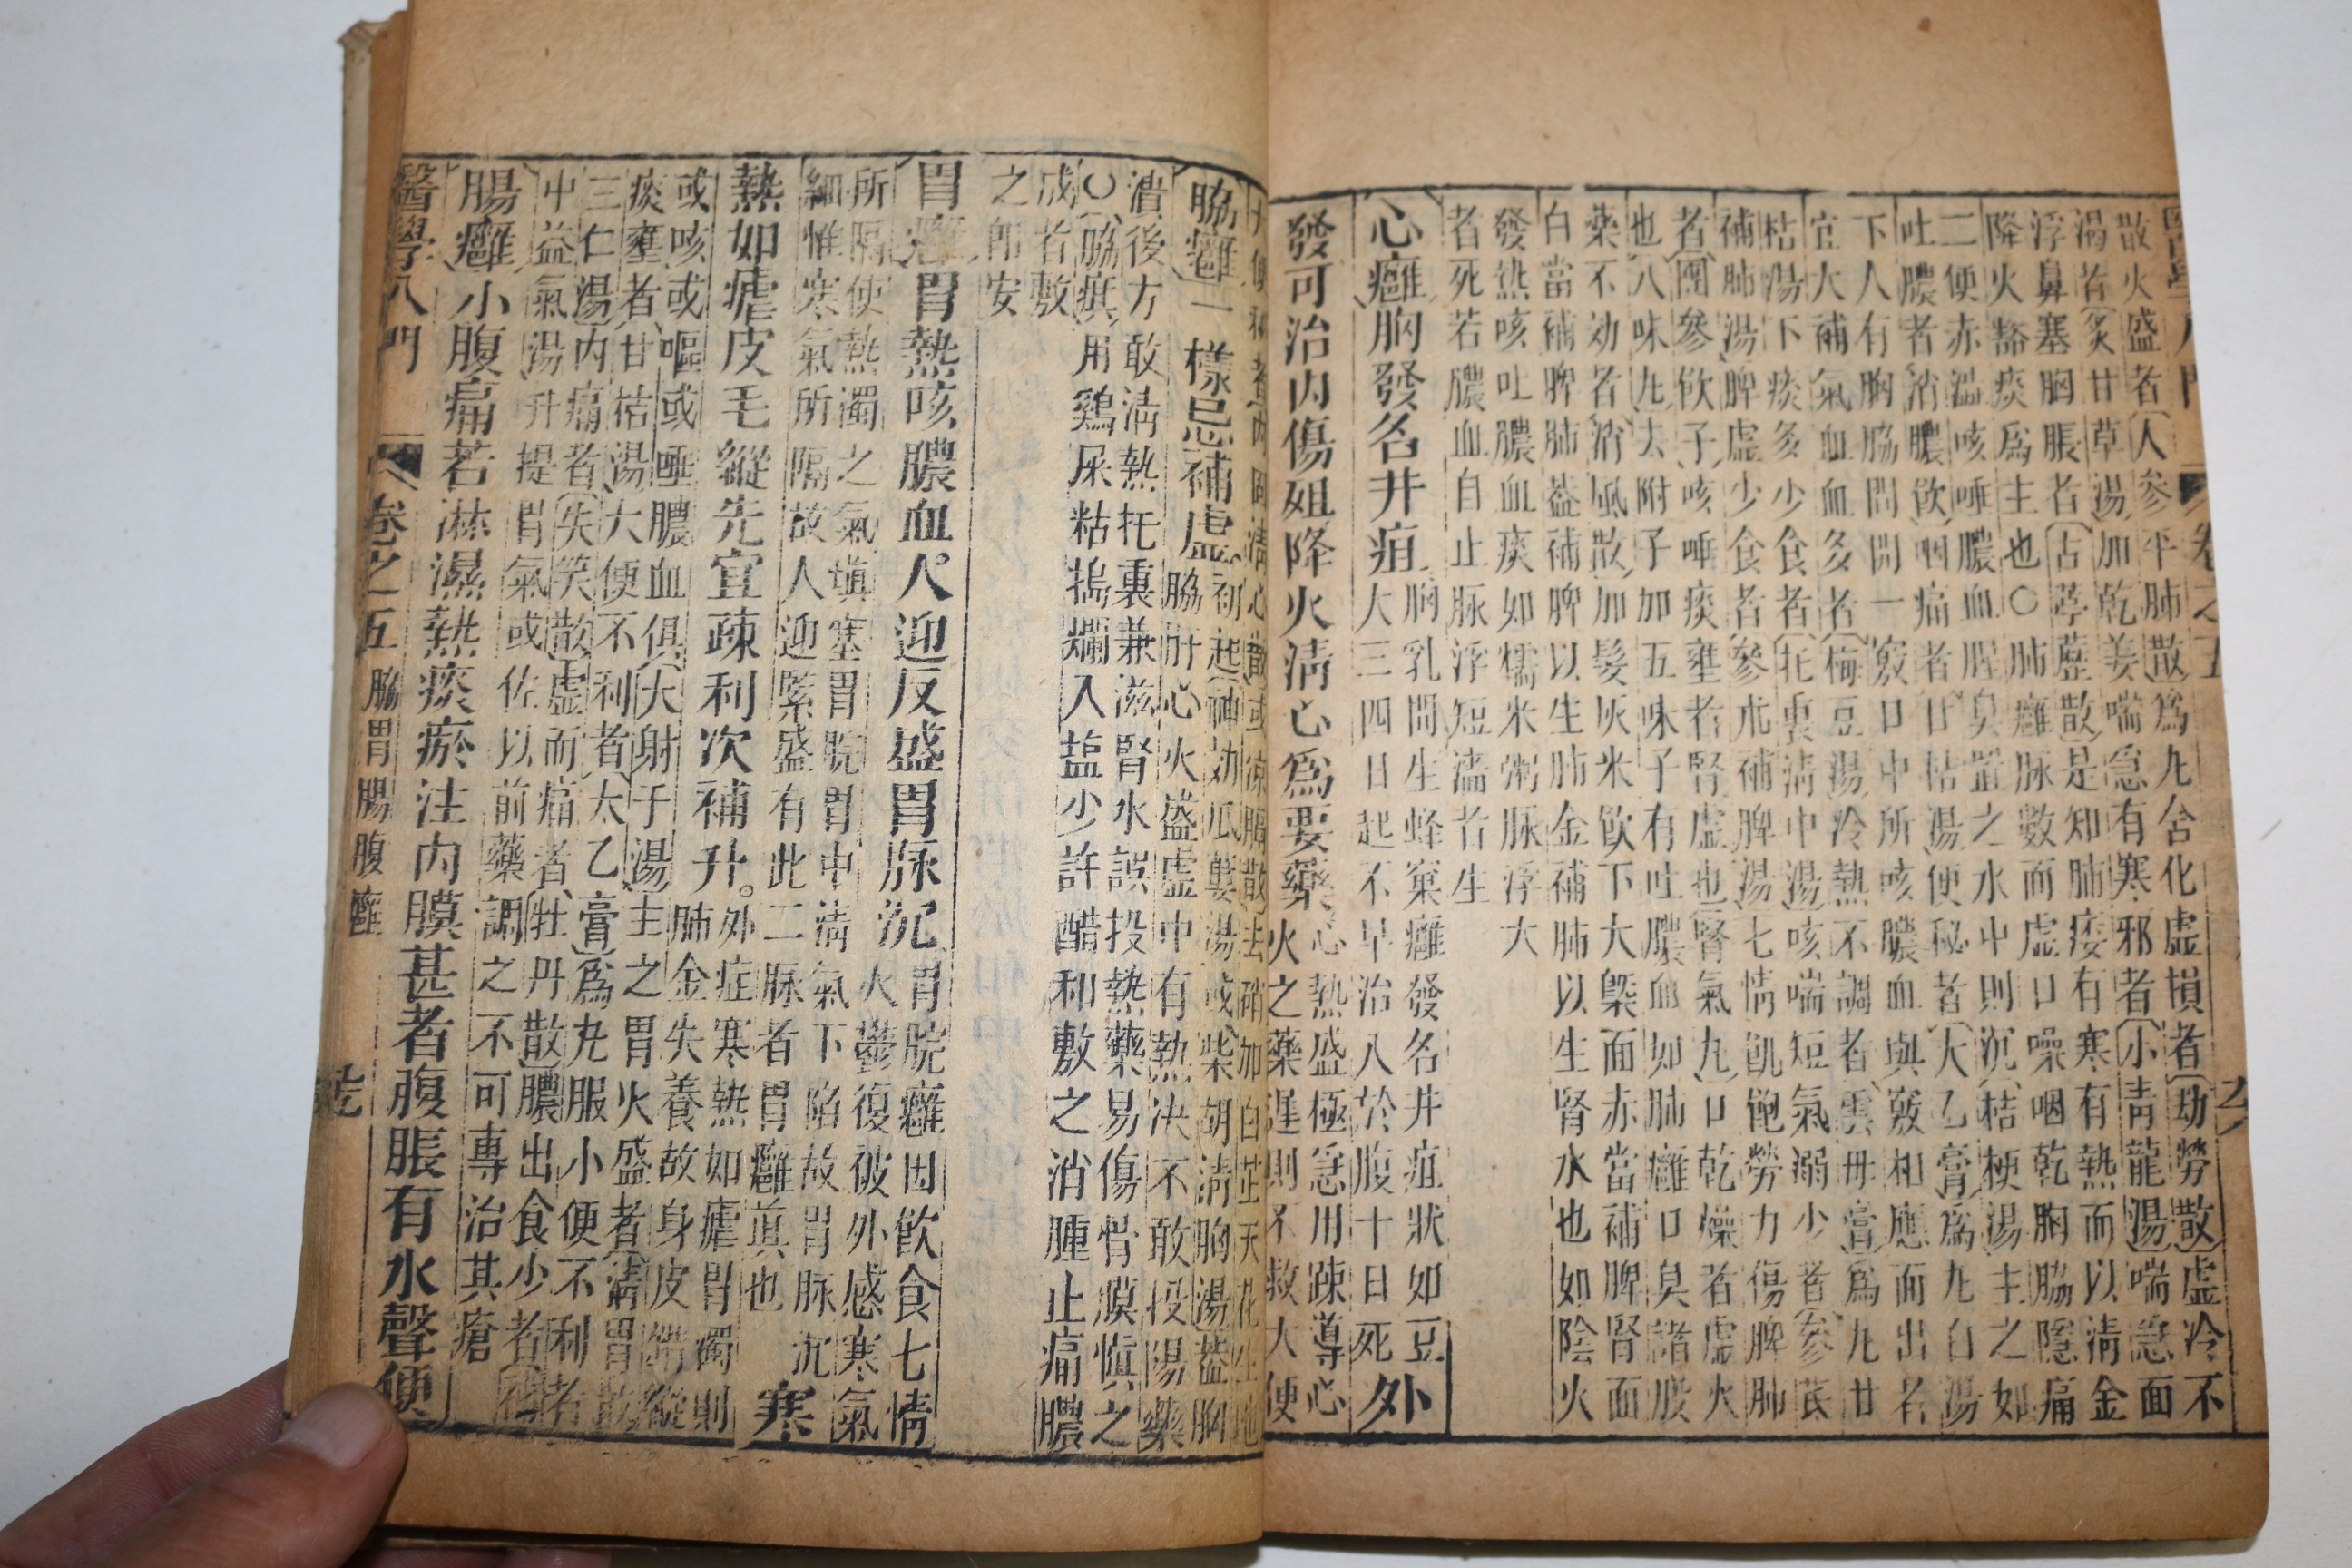 醫學入門 卷之五
散火盛者人參平肺散爲丸含化虛損者劫勞散虛冷不
渴者炙甘草湯加乾姜喘急有寒邪者小青龍湯喘急面
浮鼻塞胸脹者古葶藶散是知肺痿有寒有熱而以淸金
降火豁痰爲主也○肺癰脉數而虛口噪咽乾胸脇隱痛
二便赤澁咳唾膿血腥臭置之水中則沉桔梗湯主之如
吐膿者消膿飮咽痛者甘桔湯便秘者太乙膏爲丸白湯
下人有胸脇間開一竅口中所咳膿血與竅相應而出名
宜大補氣血血多者梅豆湯冷熱不調者雲母膏爲丸甘
桔湯下痰多少食者托裏淸中湯咳喘短氣溺少者參芪
補肺湯脾虛少食者參朮補脾湯七情飢飽勞力傷脾肺
者團參飮子咳唾痰壅者腎虛也腎氣丸口乾燥者虛火
也八味丸去附子加五味子有吐膿血如肺癰口臭諸般
藥不効者消風散加髮灰米飮下大槩面赤當補脾腎面
白當補脾肺葢補脾以生肺金補肺以生腎水也如陰火
發熱咳吐膿血痰如糯米粥脉浮大
者死若膿血自止脉浮短濇者生
心癰胸發名井疽胸乳間生蜂窠癰發名井疽狀如豆
大三四日起不早治入於腹十日死外
發可治內傷殂降火淸心爲要藥心熱盛極急用疎導心
火之藥遲則不救大便
脇癰一樣忌補虛初起神効瓜蔞湯或柴胡淸胸湯葢胸
脇肝心火盛虛中有熱決不敢投陽藥
潰後方敢淸熱托裏兼滋腎水誤投熱藥易傷骨膜愼之
○脇疽用鷄屎粘搗爛入塩少許醋和敷之消腫止痛膿
成者敷
之卽安
胃癰胃熱咳膿血人迎反盛胃脉沉胃脘癰因飮食七情
火鬱復被外感寒氣
所隔使熱濁之氣塡塞胃脘胃中淸氣下陷故胃脉沉
細惟寒氣所隔故人迎緊盛有此二脉者胃癰眞也寒
熱如瘧皮毛縱先宜疎利次補升。外症寒熱如瘧胃濁則
肺金失養故身皮錯縱
或咳或嘔或唾膿血俱大射干湯主之胃火盛者淸胃散
痰壅者甘桔湯大便不利者太乙膏爲丸服小便不利者
三仁湯內痛者失笑散虛而痛者牡丹散膿出食少者補
中益氣湯升提胃氣或佐以前藥調之不可專治其瘡
腸癰小腹痛若淋濕熱痰瘀注內膜甚者腹脹有水聲便
醫學入門 卷之五 脇胃腸腹癰